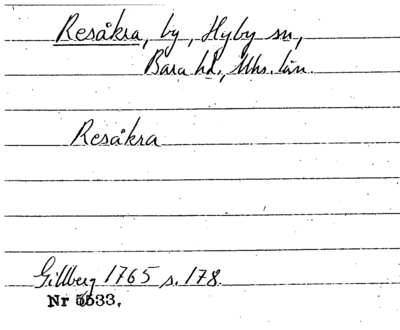 Resåkra, by, Hyby sn,
Bara hd., Mhs. län.
Resåkra
Gillberg 1765 s. 178.
Nr